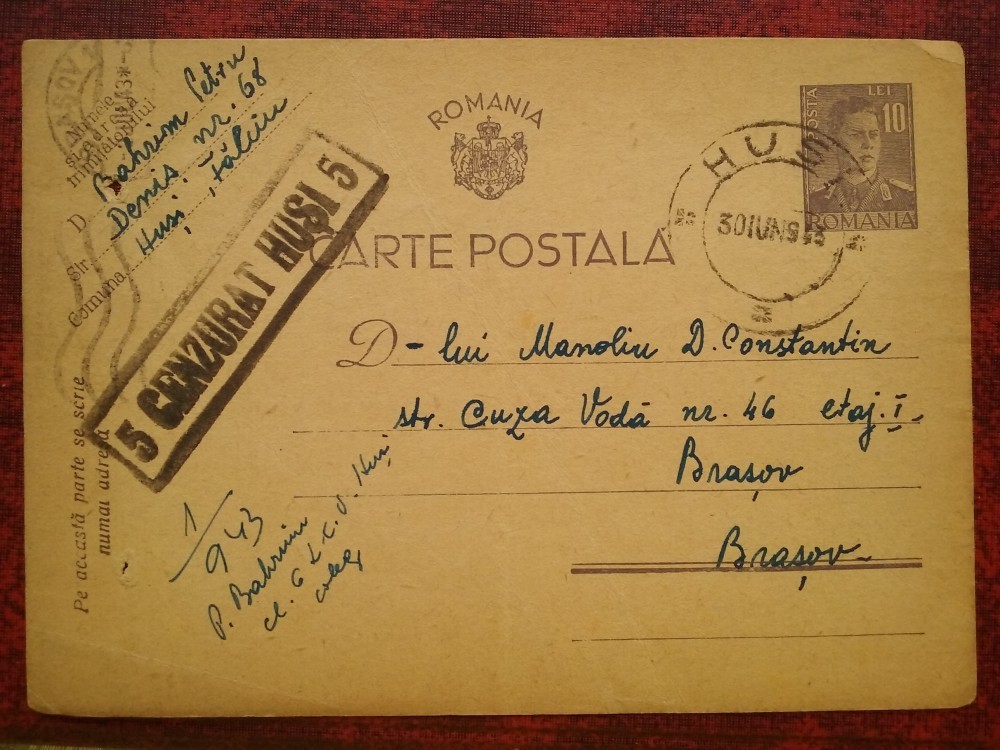 Numele
și adresa
trimițătorului
D. Bahrim Petru
Str. Denis. nr. 68
Comuna Huși, Fălciu
ROMANIA
POSTA LEI 10
ROMANIA
HUȘI
30 IUN 943
CARTE POSTALA
5 CENZURAT HUȘI 5
D-lui Manoliu D. Constantin
str. Cuza Vodă nr. 46 etaj. I.
Brașov
Brașov
Pe această parte se scrie
numai adresa
1/943
P. Bahrim
cl. 6 L. C. D. Huși